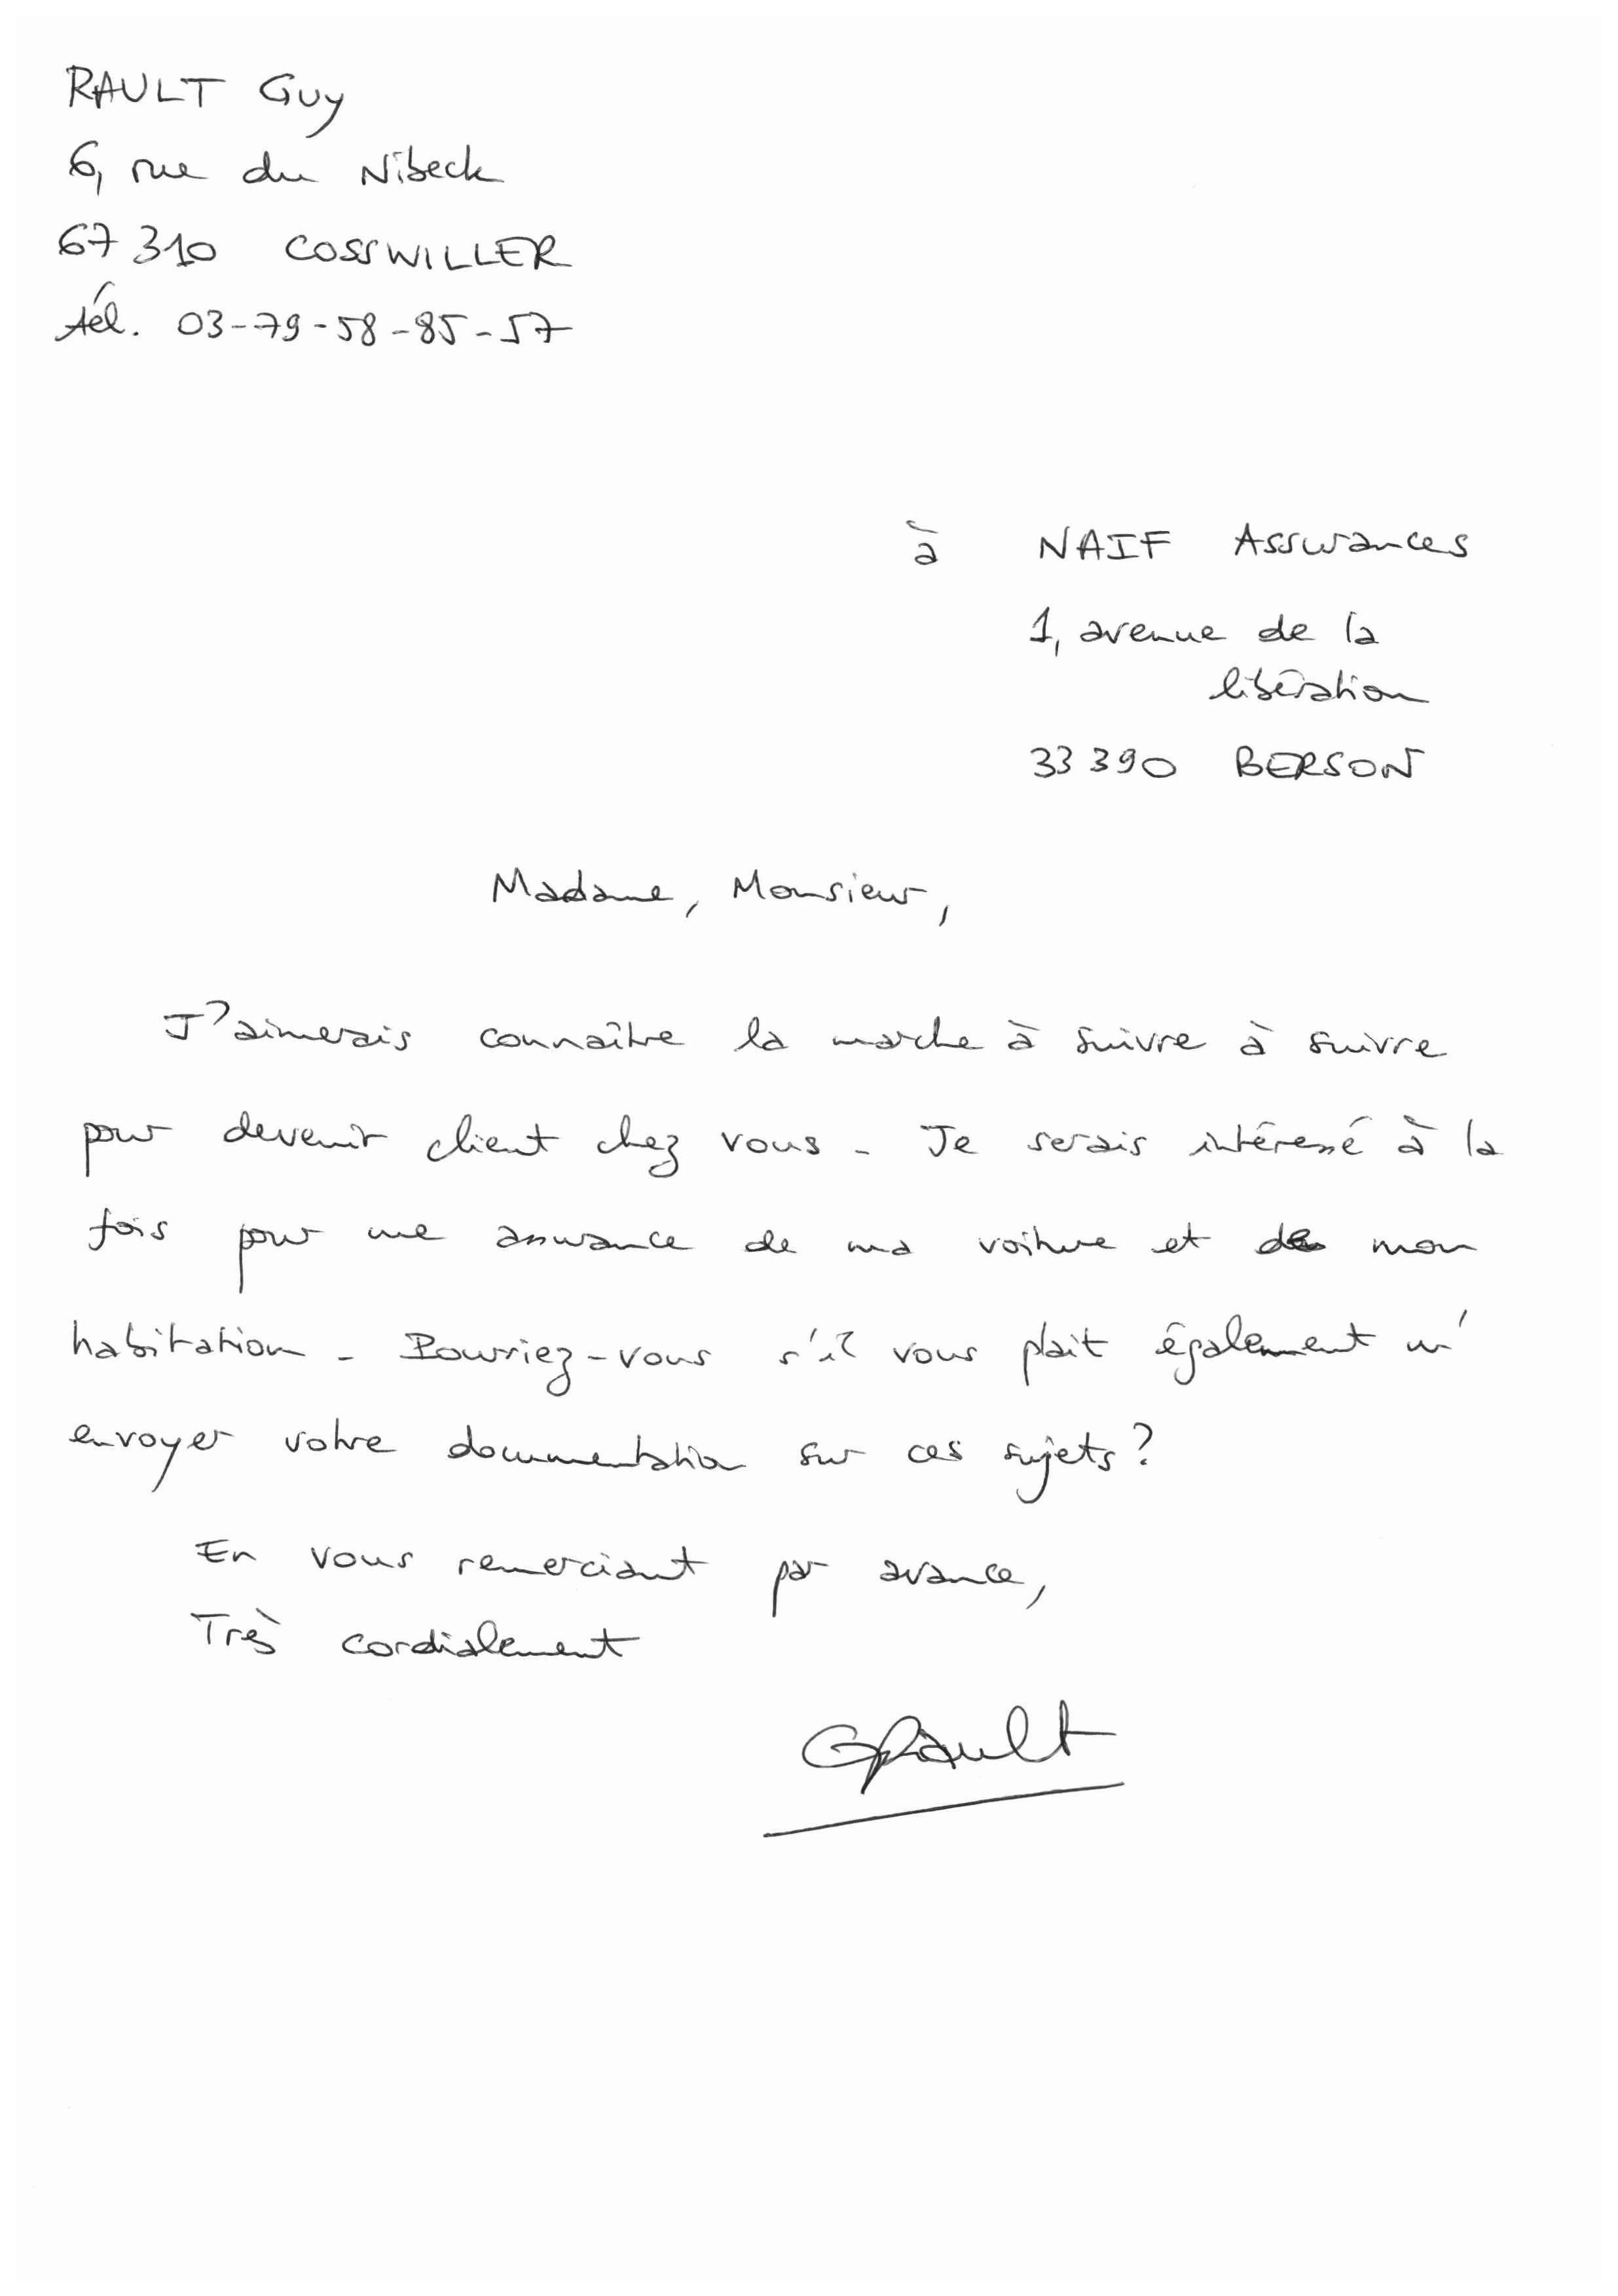 RAULT Guy
6, rue du Nibeck
67310 COSSWILLER
tél. 03-79-58-85-57
à NAIF Assurances
1, avenue de la
libération
33390 BERSON
Madame, Monsieur,
J'aimerais connaître la marche à suivre à suivre
pour devenir client chez vous. Je serais intéressé à la
fois pour une assurance de ma voiture et de mon
habitation. Pourriez-vous s'il vous plait également m'
envoyer votre documentation sur ces sujets ?
En vous remerciant par avance,
Très cordialement
GRault